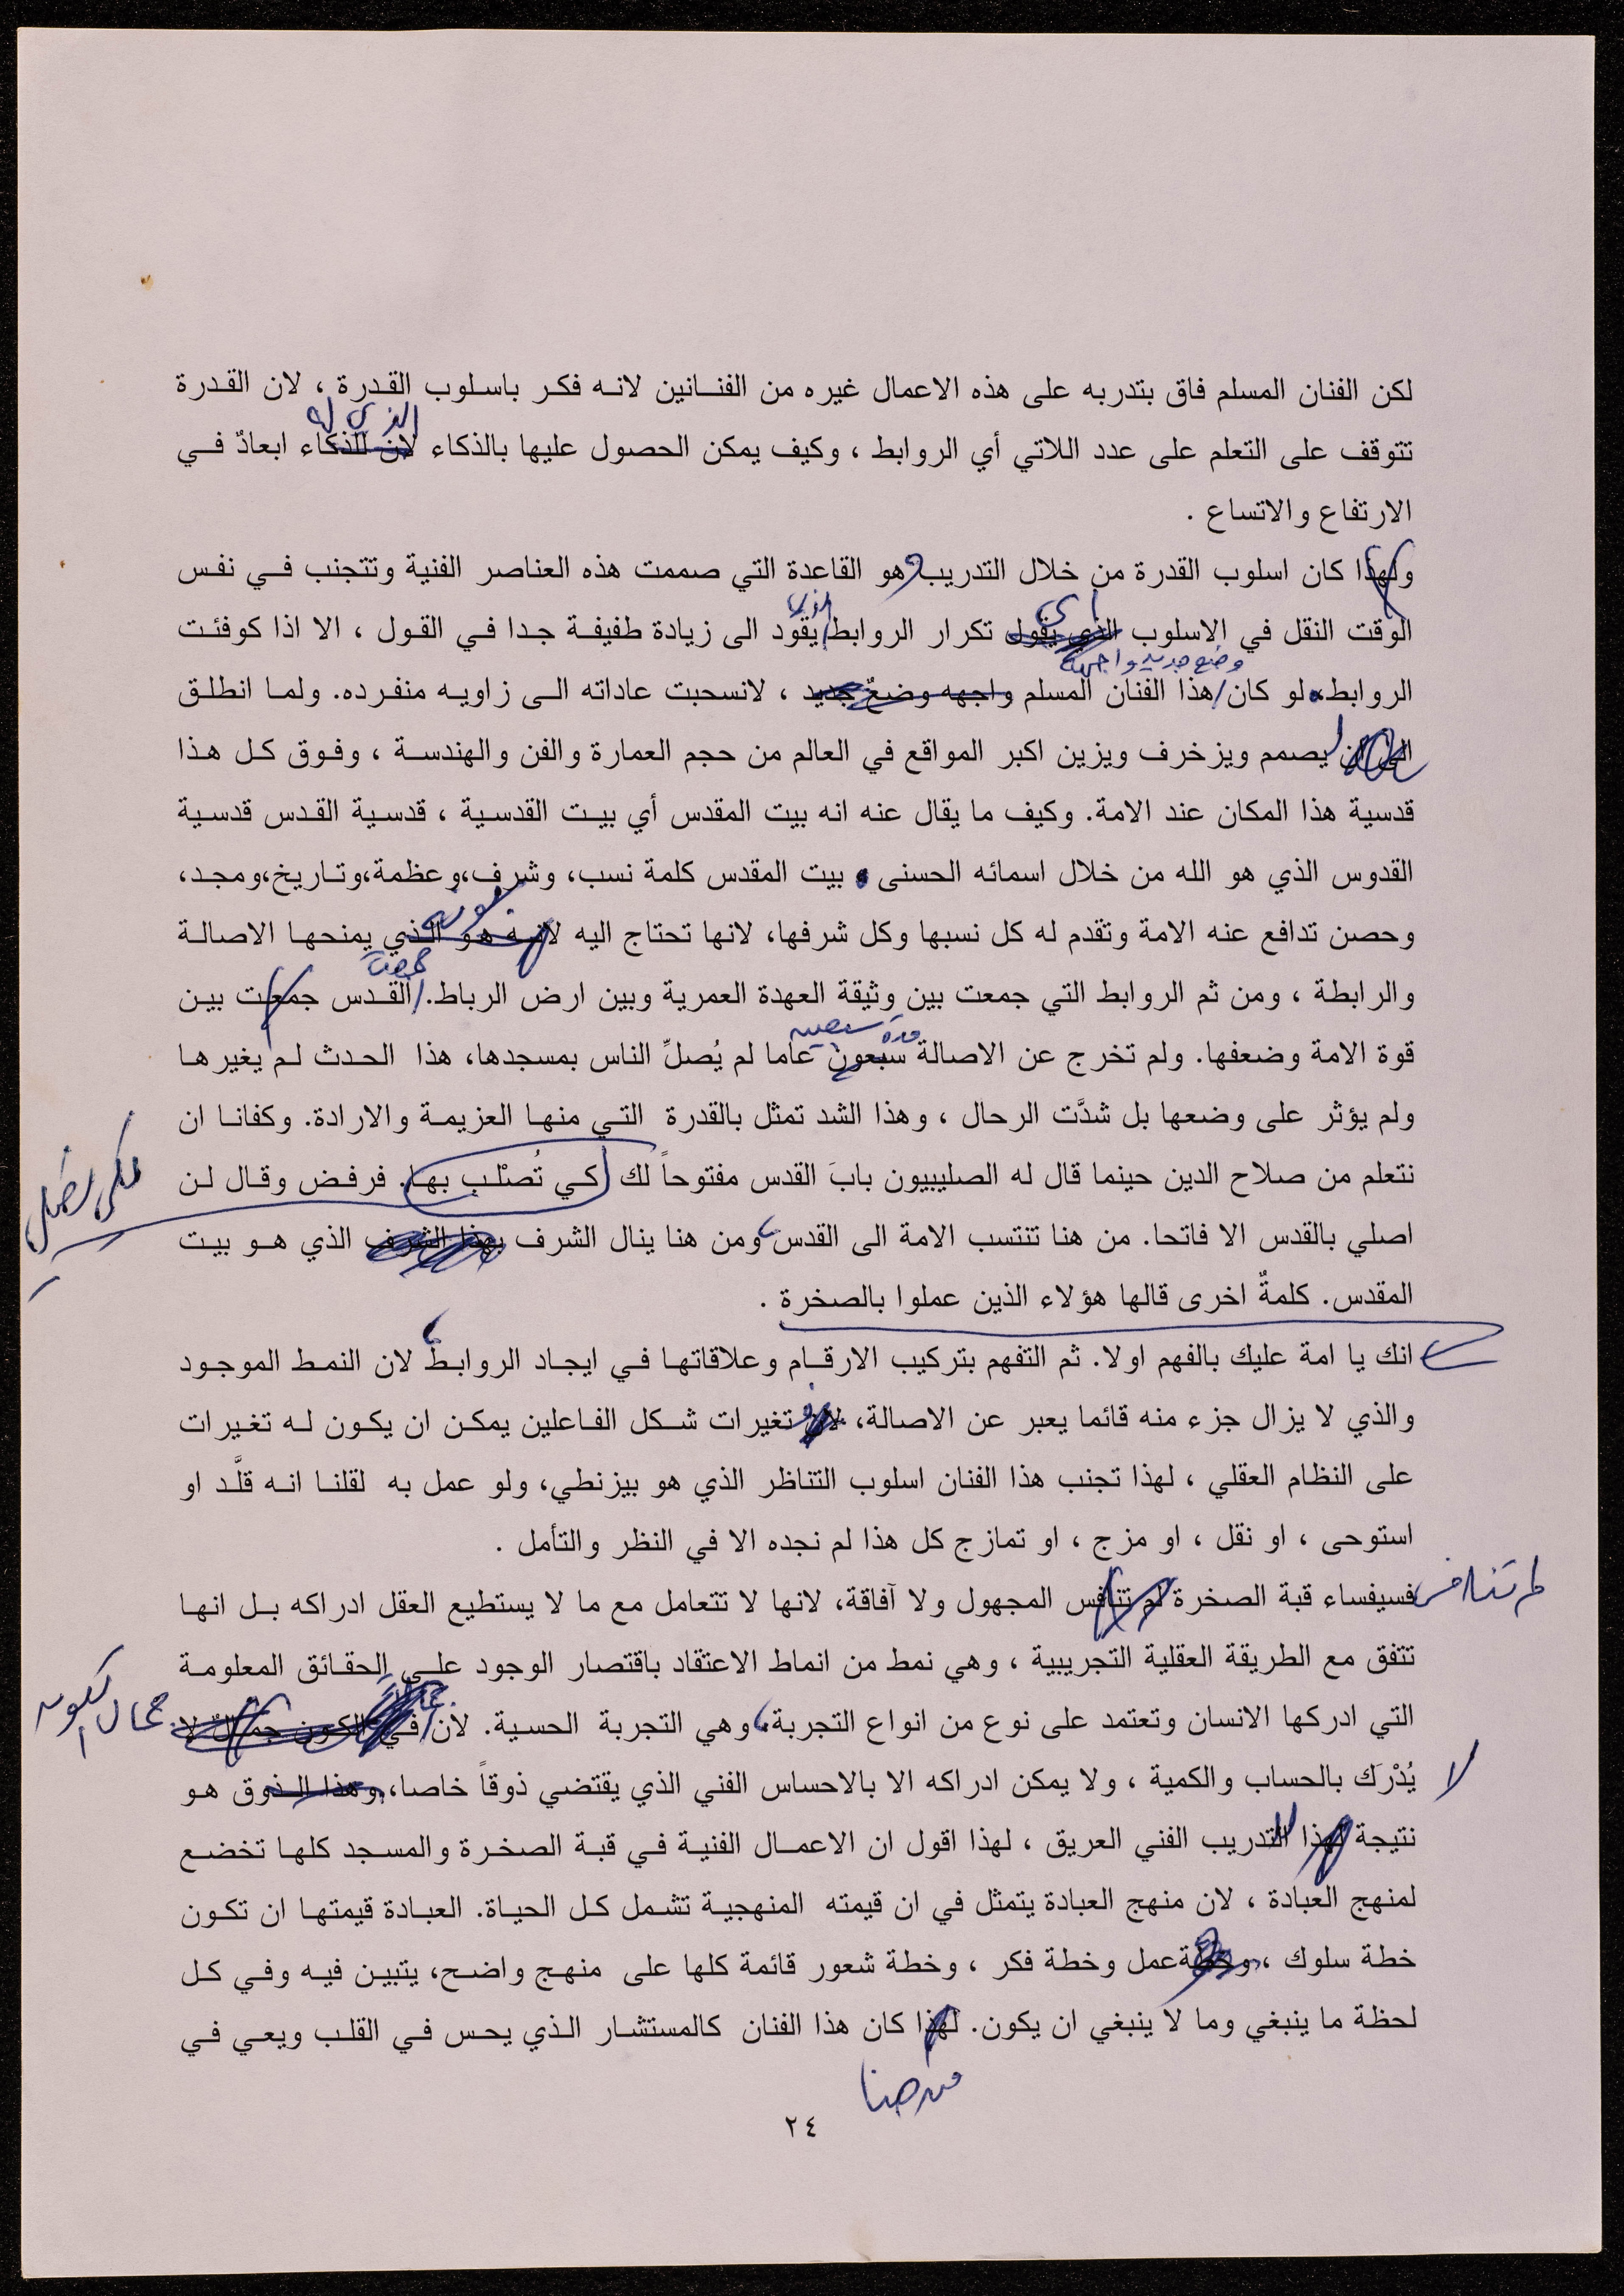 لكن الفنان المسلم فاق بتدربه على هذه الاعمال غيره من الفنانين لانه فكر باسلوب القدرة ، لان القدرة
الذي له
تتوقف على التعلم على عدد اللاتي أي الروابط ، وكيف يمكن الحصول عليها بالذكاء لان للذكاء ابعادٌ في
الارتفاع والاتساع .
ولهذا كان اسلوب القدرة من خلال التدريب هو القاعدة التي صممت هذه العناصر الفنية وتتجنب في نفس
أي الذي
الوقت النقل في الاسلوب الذي يقول تكرار الروابط يقود الى زيادة طفيفة جدا في القول ، الا اذا كوفئت
وضع جديد واجهه
الروابط. لو كان هذا الفنان المسلم واجهه وضعٌ جديد ، لانسحبت عاداته الى زاويه منفرده. ولما انطلق
الى ان يصمم ويزخرف ويزين اكبر المواقع في العالم من حجم العمارة والفن والهندسة ، وفوق كل هذا
قدسية هذا المكان عند الامة. وكيف ما يقال عنه انه بيت المقدس أي بيت القدسية ، قدسية القدس قدسية
القدوس الذي هو الله من خلال اسمائه الحسنى . بيت المقدس كلمة نسب، وشرف،وعظمة،وتاريخ،ومجد،
وحصن تدافع عنه الامة وتقدم له كل نسبها وكل شرفها، لانها تحتاج اليه لانه هو الذي يمنحها الاصالة
جمعت
والرابطة ، ومن ثم الروابط التي جمعت بين وثيقة العهدة العمرية وبين ارض الرباط. القدس جمعت بين
مدة سبعين
قوة الامة وضعفها. ولم تخرج عن الاصالة سبعون عاما لم يُصلِّ الناس بمسجدها، هذا الحدث لم يغيرها
ولم يؤثر على وضعها بل شدَّت الرحال ، وهذا الشد تمثل بالقدرة التي منها العزيمة والارادة. وكفانا ان
نتعلم من صلاح الدين حينما قال له الصليبيون بابَ القدس مفتوحاً لك كي تُصْلب بها. فرفض وقال لن
اصلي بالقدس الا فاتحا. من هنا تنتسب الامة الى القدس، ومن هنا ينال الشرف بهذا الشرف الذي هو بيت
المقدس. كلمةٌ اخرى قالها هؤلاء الذين عملوا بالصخرة .
انك يا امة عليك بالفهم اولا. ثم التفهم بتركيب الارقام وعلاقاتها في ايجاد الروابط، لان النمط الموجود
والذي لا يزال جزء منه قائما يعبر عن الاصالة، لان تغيرات شكل الفاعلين يمكن ان يكون له تغيرات
على النظام العقلي ، لهذا تجنب هذا الفنان اسلوب التناظر الذي هو بيزنطي، ولو عمل به لقلنا انه قلَّد او
استوحى ، او نقل ، او مزج ، او تمازج كل هذا لم نجده الا في النظر والتأمل .
لم تنافس
فسيفساء قبة الصخرة لم تنافس المجهول ولا آفاقة، لانها لا تتعامل مع ما لا يستطيع العقل ادراكه بل انها
تتفق مع الطريقة العقلية التجريبية ، وهي نمط من انماط الاعتقاد باقتصار الوجود على الحقائق المعلومة
التي ادركها الانسان وتعتمد على نوع من انواع التجربة، وهي التجربة الحسية. لان في الكون جمالٌ لا
جمال الكون
لا
يُدْرَك بالحساب والكمية ، ولا يمكن ادراكه الا بالاحساس الفني الذي يقتضي ذوقاً خاصا، وهذا الذوق هو
نتيجة لهذا التدريب الفني العريق ، لهذا اقول ان الاعمال الفنية في قبة الصخرة والمسجد كلها تخضع
لمنهج العبادة ، لان منهج العبادة يتمثل في ان قيمته المنهجية تشمل كل الحياة. العبادة قيمتها ان تكون
خطة سلوك ، وخطة عمل وخطة فكر ، وخطة شعور قائمة كلها على منهج واضح، يتبين فيه وفي كل
لحظة ما ينبغي وما لا ينبغي ان يكون. لهذا كان هذا الفنان كالمستشار الذي يحس في القلب ويعي في
من هنا
٢٤